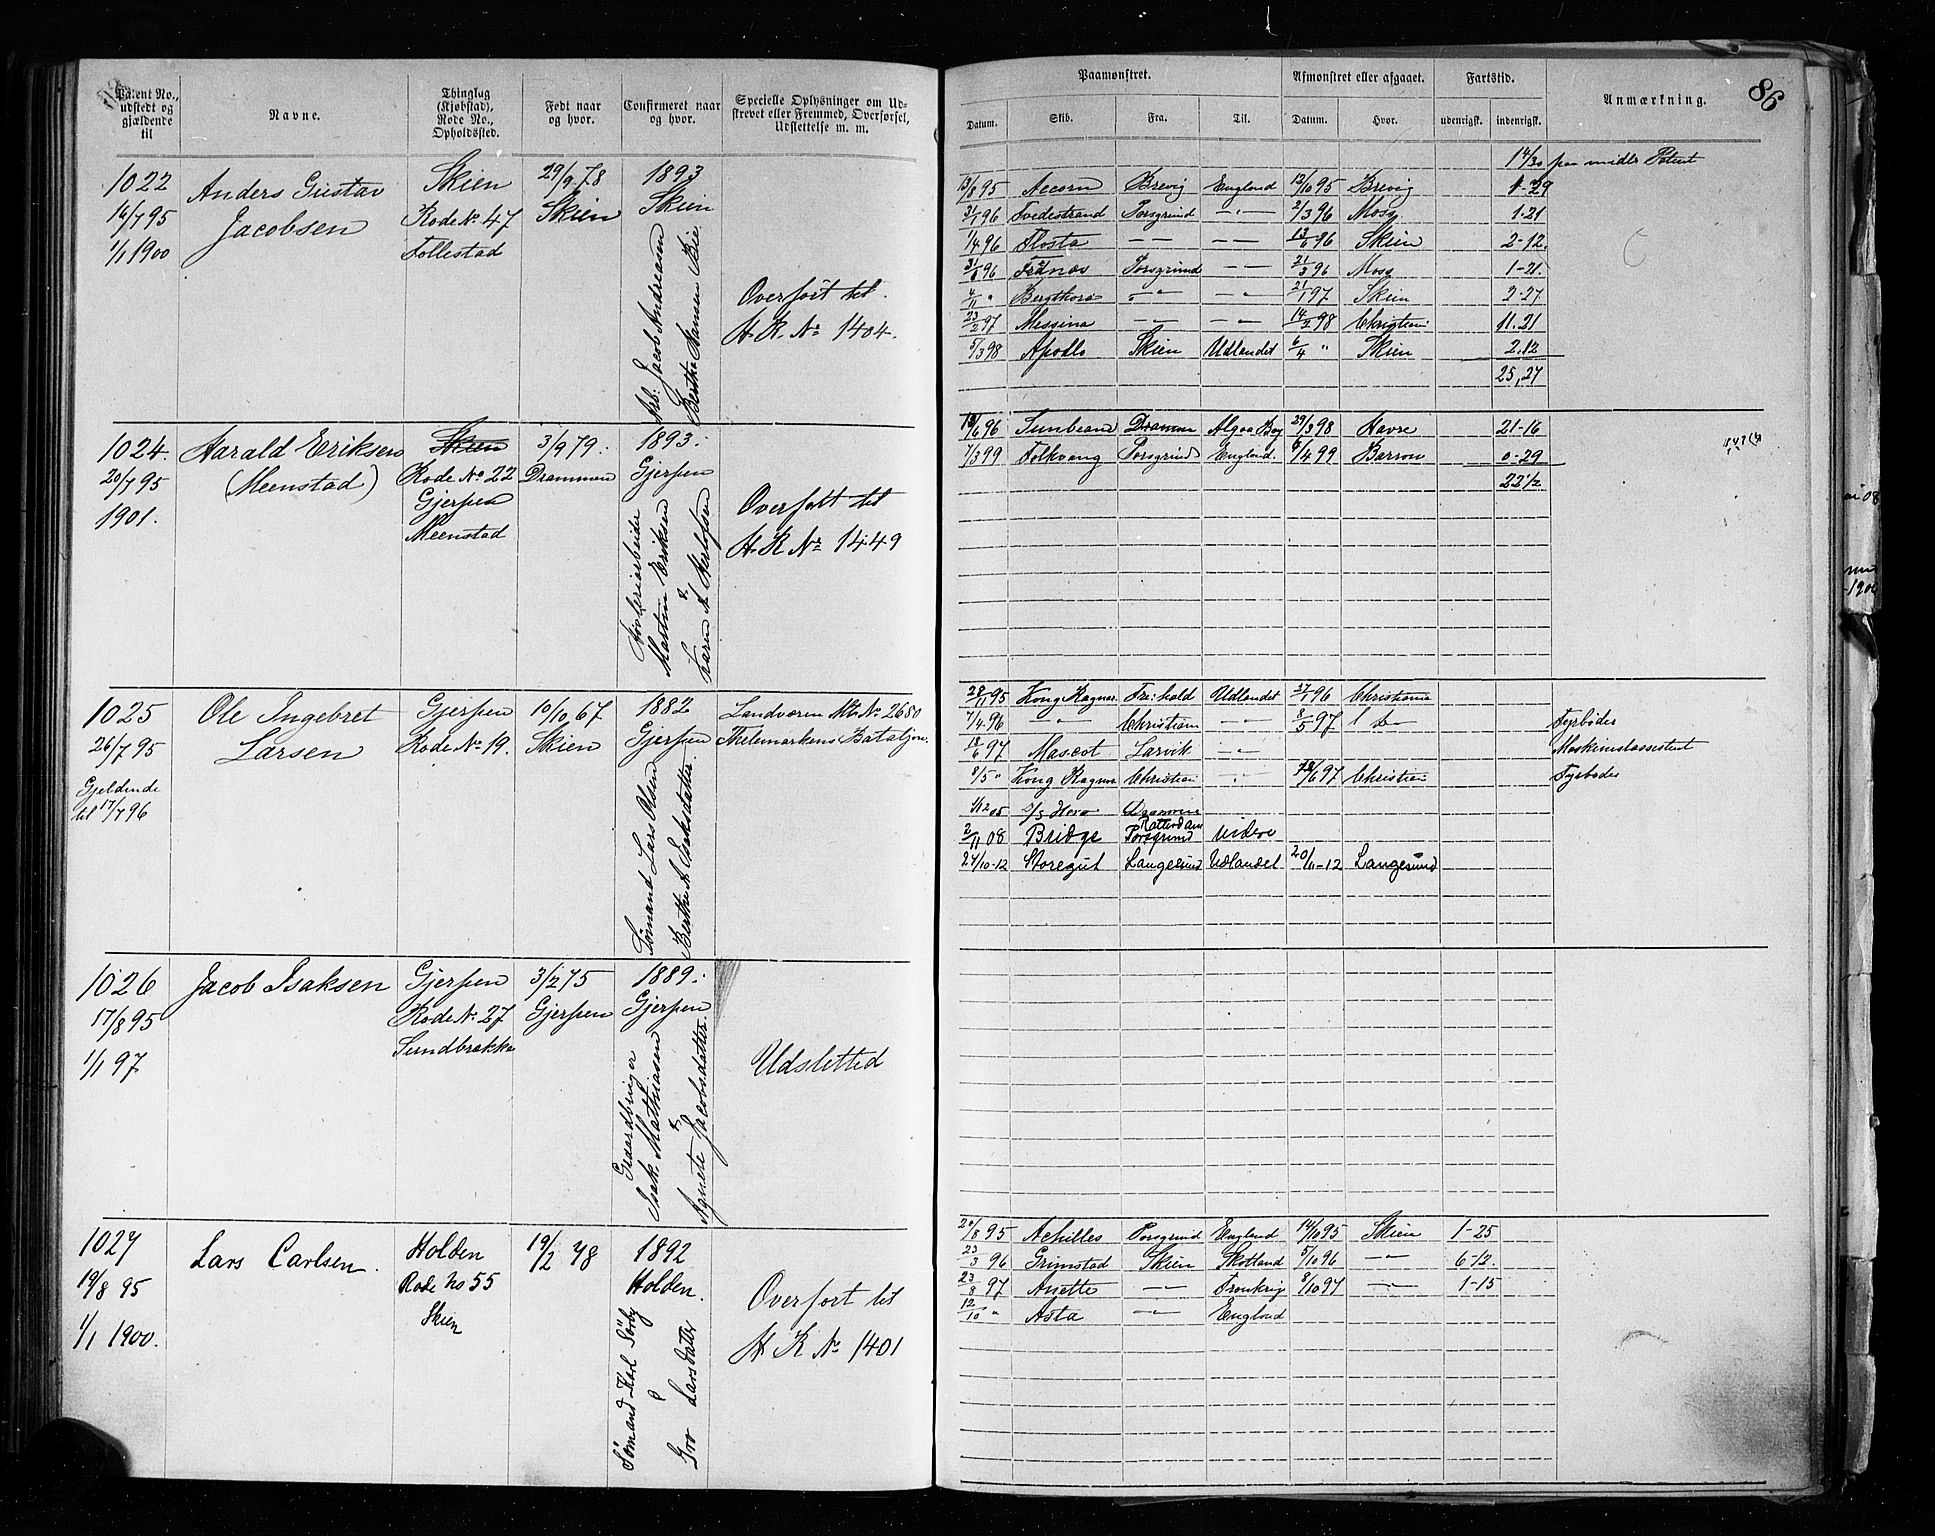 Patent No., udstedt og gjældende til
Navne.
Thinglag (Kjøbstad), Rode No., Opholdssted.
Født naar og hvor.
Confirmeret naar og hvor.
Specielle Oplysninger om Udstrevet eller Fremmed, Overførsel, Udslettelse m. m.
1022
16/7 95
1/1 1900
Anders Gustav
Jacobsen
Skien
Rode No 47
Follestad
29/9 78
Skien
1893
Skien
Arb: Jacob Andreasen
Berthe Hansen Bie
Overført til
H. R. No 1404.
1024.
20/7 95
1901.
Harald Eriksen
(Meenstad)
Skien
Rode No 22
Gjerpen
Meenstad
3/9 79.
Drammen
1893.
Gjerpen
Høvleriarbeider
Martin Eriksen
&
Karen A Herlofsen
Overført til
H. R. No 1449
1025
26/7 95
Gjeldende
til 17/7 96
Ole Ingebret
Larsen
Gjerpen
Rode No 19.
10/10 67
Skien
1882
Gjerpen
Sømand Lars Olsen
Berthe A Isaksdatter
Landværn Mt. No 2680
Thelemarkens Bataljon.
1026
17/8 95
1/1 97
Jacob Isaksen
Gjerpen
Rode No 27
Sundbrækka
3/2 75
Gjerpen
1889.
Gjerpen
Gaardbruger
Isak Mathiasen
&
Agnete Jacobsdatter
Udsletted
1027
19/8 95
1/1 1900.
Lars Carlsen
Holden
Rode No 55
Skien
19/2 78
1892
Holden.
Sømand Karl Sørby
&
Gro Larsdatter
Overført til
H R No 1401
86
Paamønstret.
Afmønstret eller afgaaet.
Fartstid.
Anmærkning.
Datum. Skib. Fra. Til. Datum. Hvor. udenrigsk. indenrigsk.
14/30 paa midls Patent
13/8 95 Accorn Brevig England 12/10 95 Brevig 1-29
3/1 96 Tvedestrand Porsgrund —"— 2/3 96 Moss 1-21
1/4 96 Flosta — — — — 13/6 96 Skien 2-12.
96 Porsgrund — — 96 Moss 1-21.
4/11 " Bergthora — " — — " — 21/1 97 Skien 2-27
23/2 97 Messina — — — " — 14/2 98 Christiani 11.21
5/3 98 Apollo Skien Udlandet 6/4 " Skien 2.12
25,27
96 Sunbeam Drammen Algoa Bay 29/3 98 Havre 21-16
7/3 99 Folkvang Porsgrund England. 6/4 99 Barrow 0-29
22 1/2
28/11 95 Kong Ragnar Fr:hald Udlandet 27/1 96 Christiania
7/4 96 — " — Christiania — " — 3/5 97 Fyrbøder
18/6 97 Mascot Larvik — " — Maskinistassistent
8/5 " Kong Ragnar Christiani — " — 97 Christiani Fyrbøder
1/12 05 S/S Hero Drammen
2/11 08 Bridge Rotterdam Porsgrund videre
24/10-12 Storegut Langesund Udlandet 20/11-12 Langesund
20/8 95 Achilles Porsgrund England 14/10 95 Skien 1-25
23/3 96 Grimstad Skien Skotland 5/10 96 — " — 6-12.
23/8 97 Anette — " — Frankrig 8/10 97 — " — 1-15
12/10 " Asta — " — England